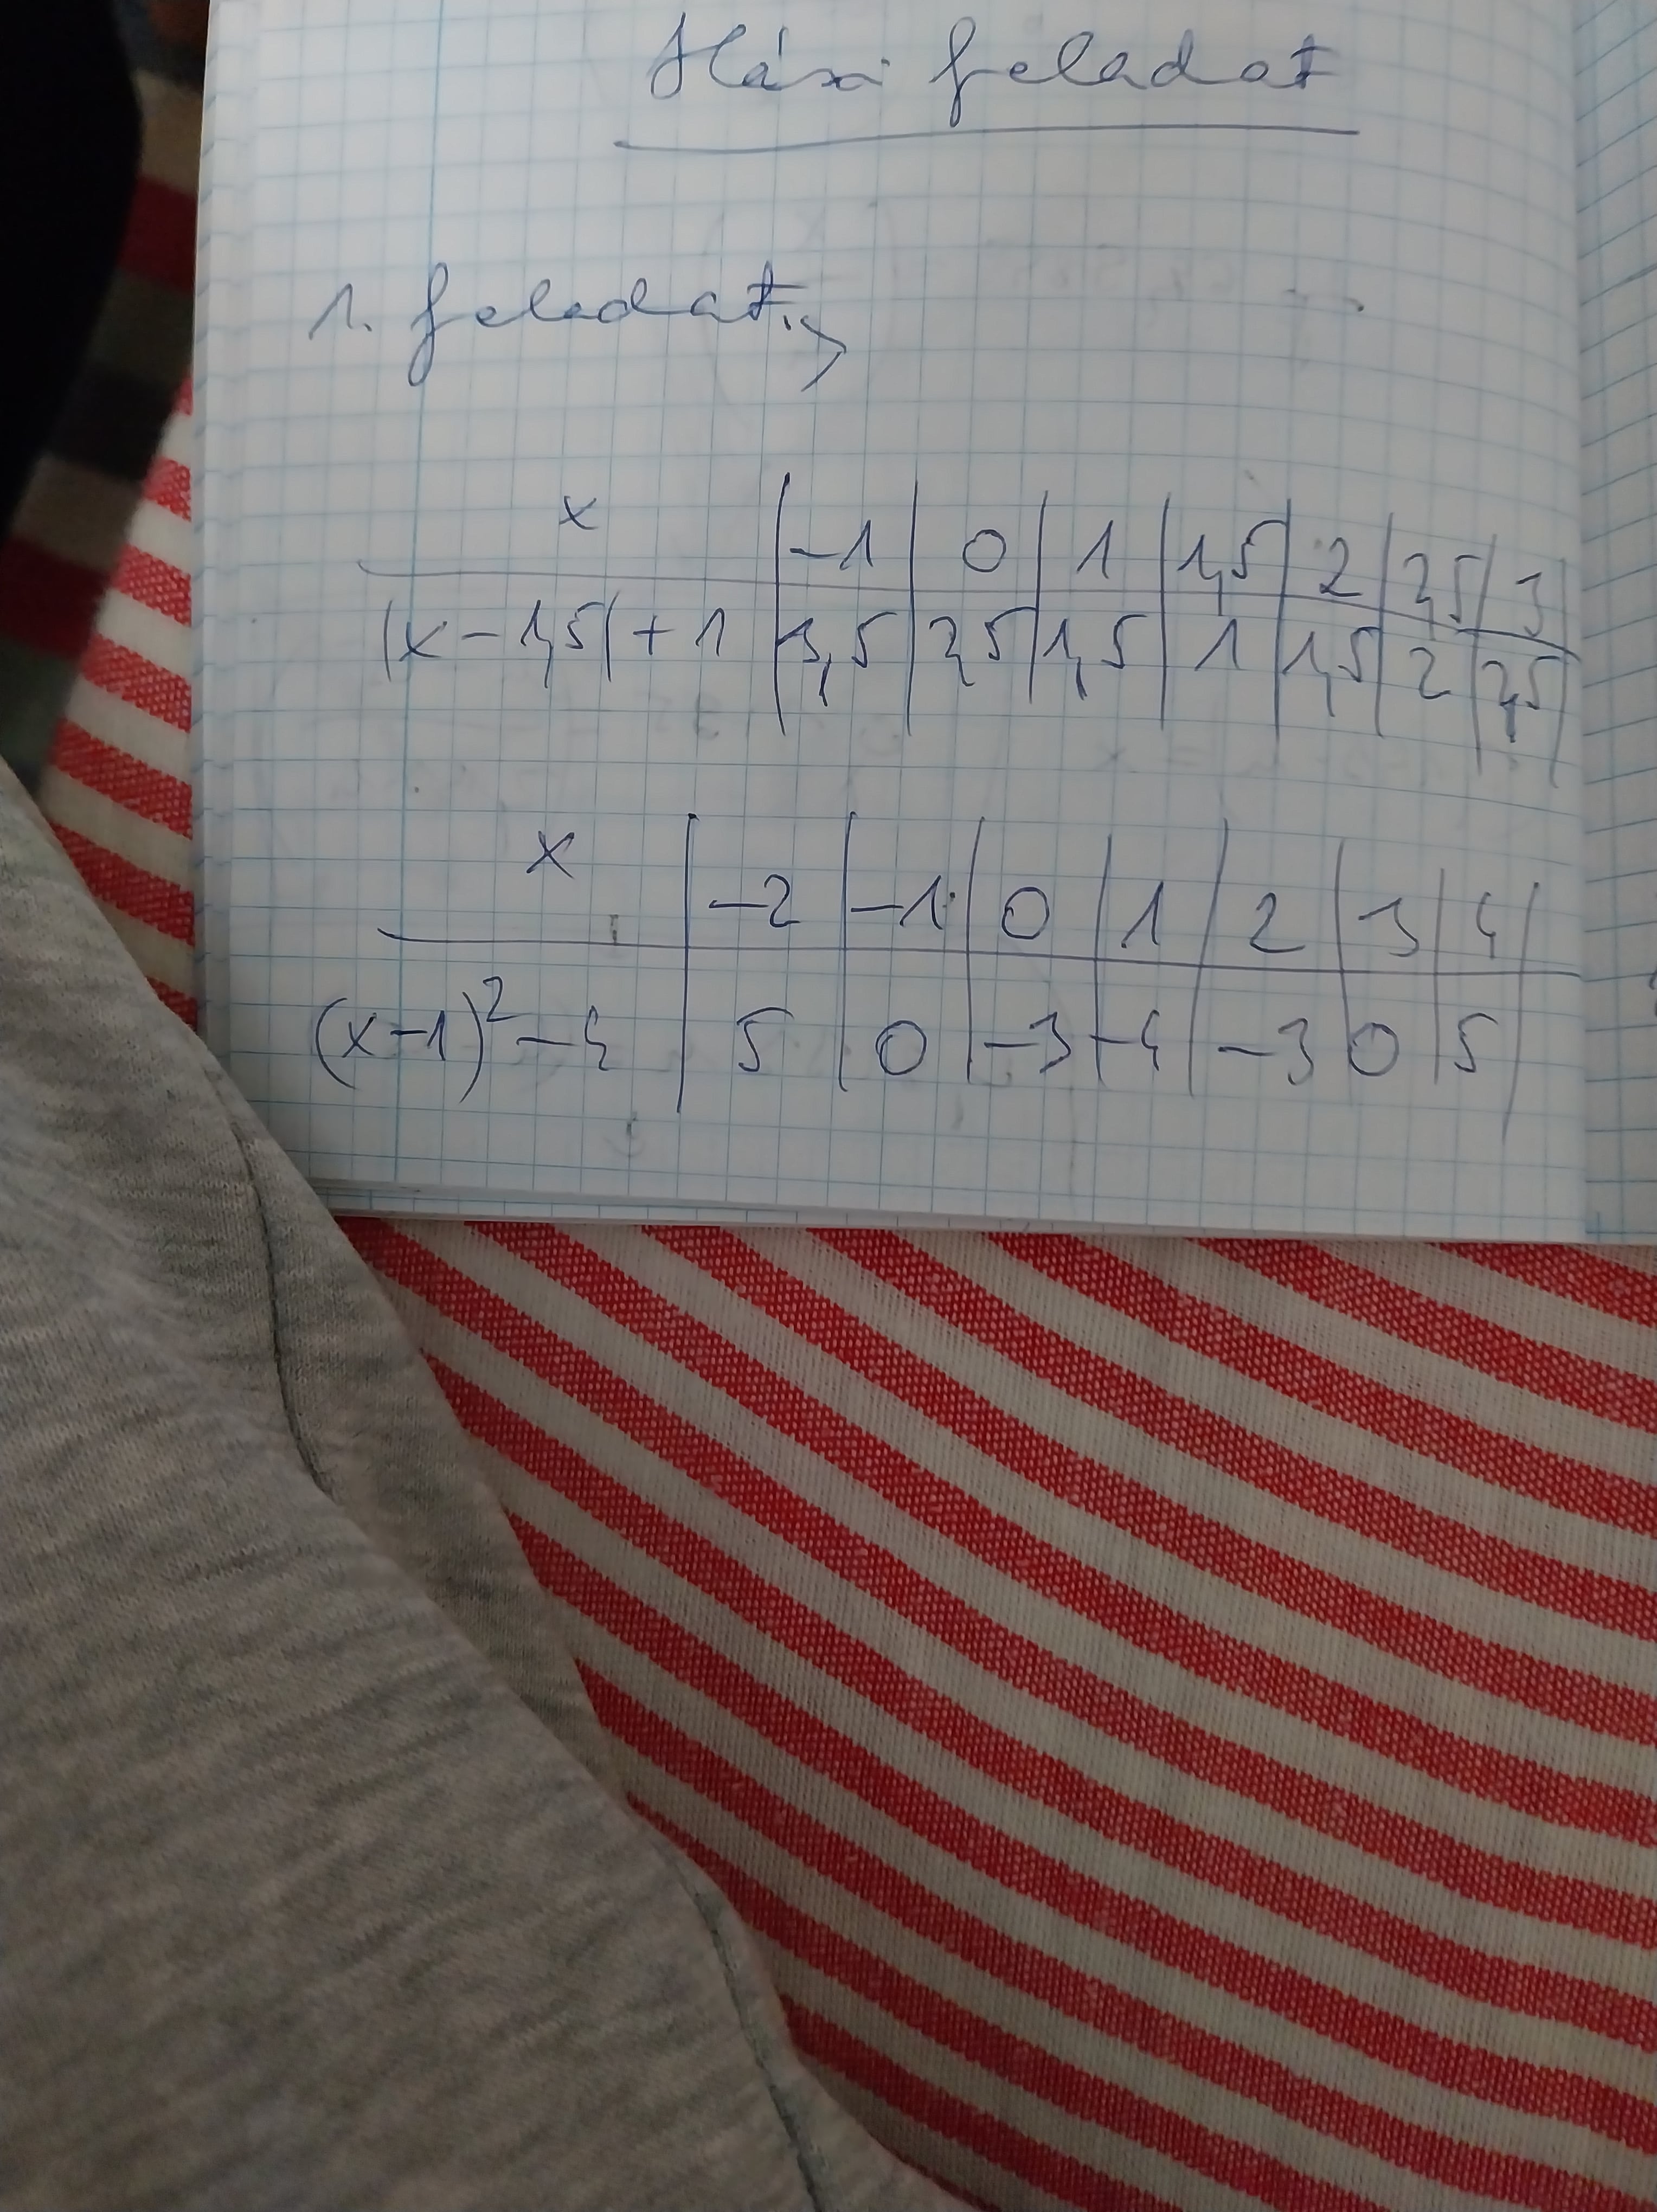 Házi feladat
1. feladat:>
x | -1 | 0 | 1 | 1,5 | 2 | 2,5 | 3
|x-1,5|+1 | 3,5 | 2,5 | 1,5 | 1 | 1,5 | 2 | 2,5
x | -2 | -1 | 0 | 1 | 2 | 3 | 4
(x-1)² -4 | 5 | 0 | -3 | -4 | -3 | 0 | 5